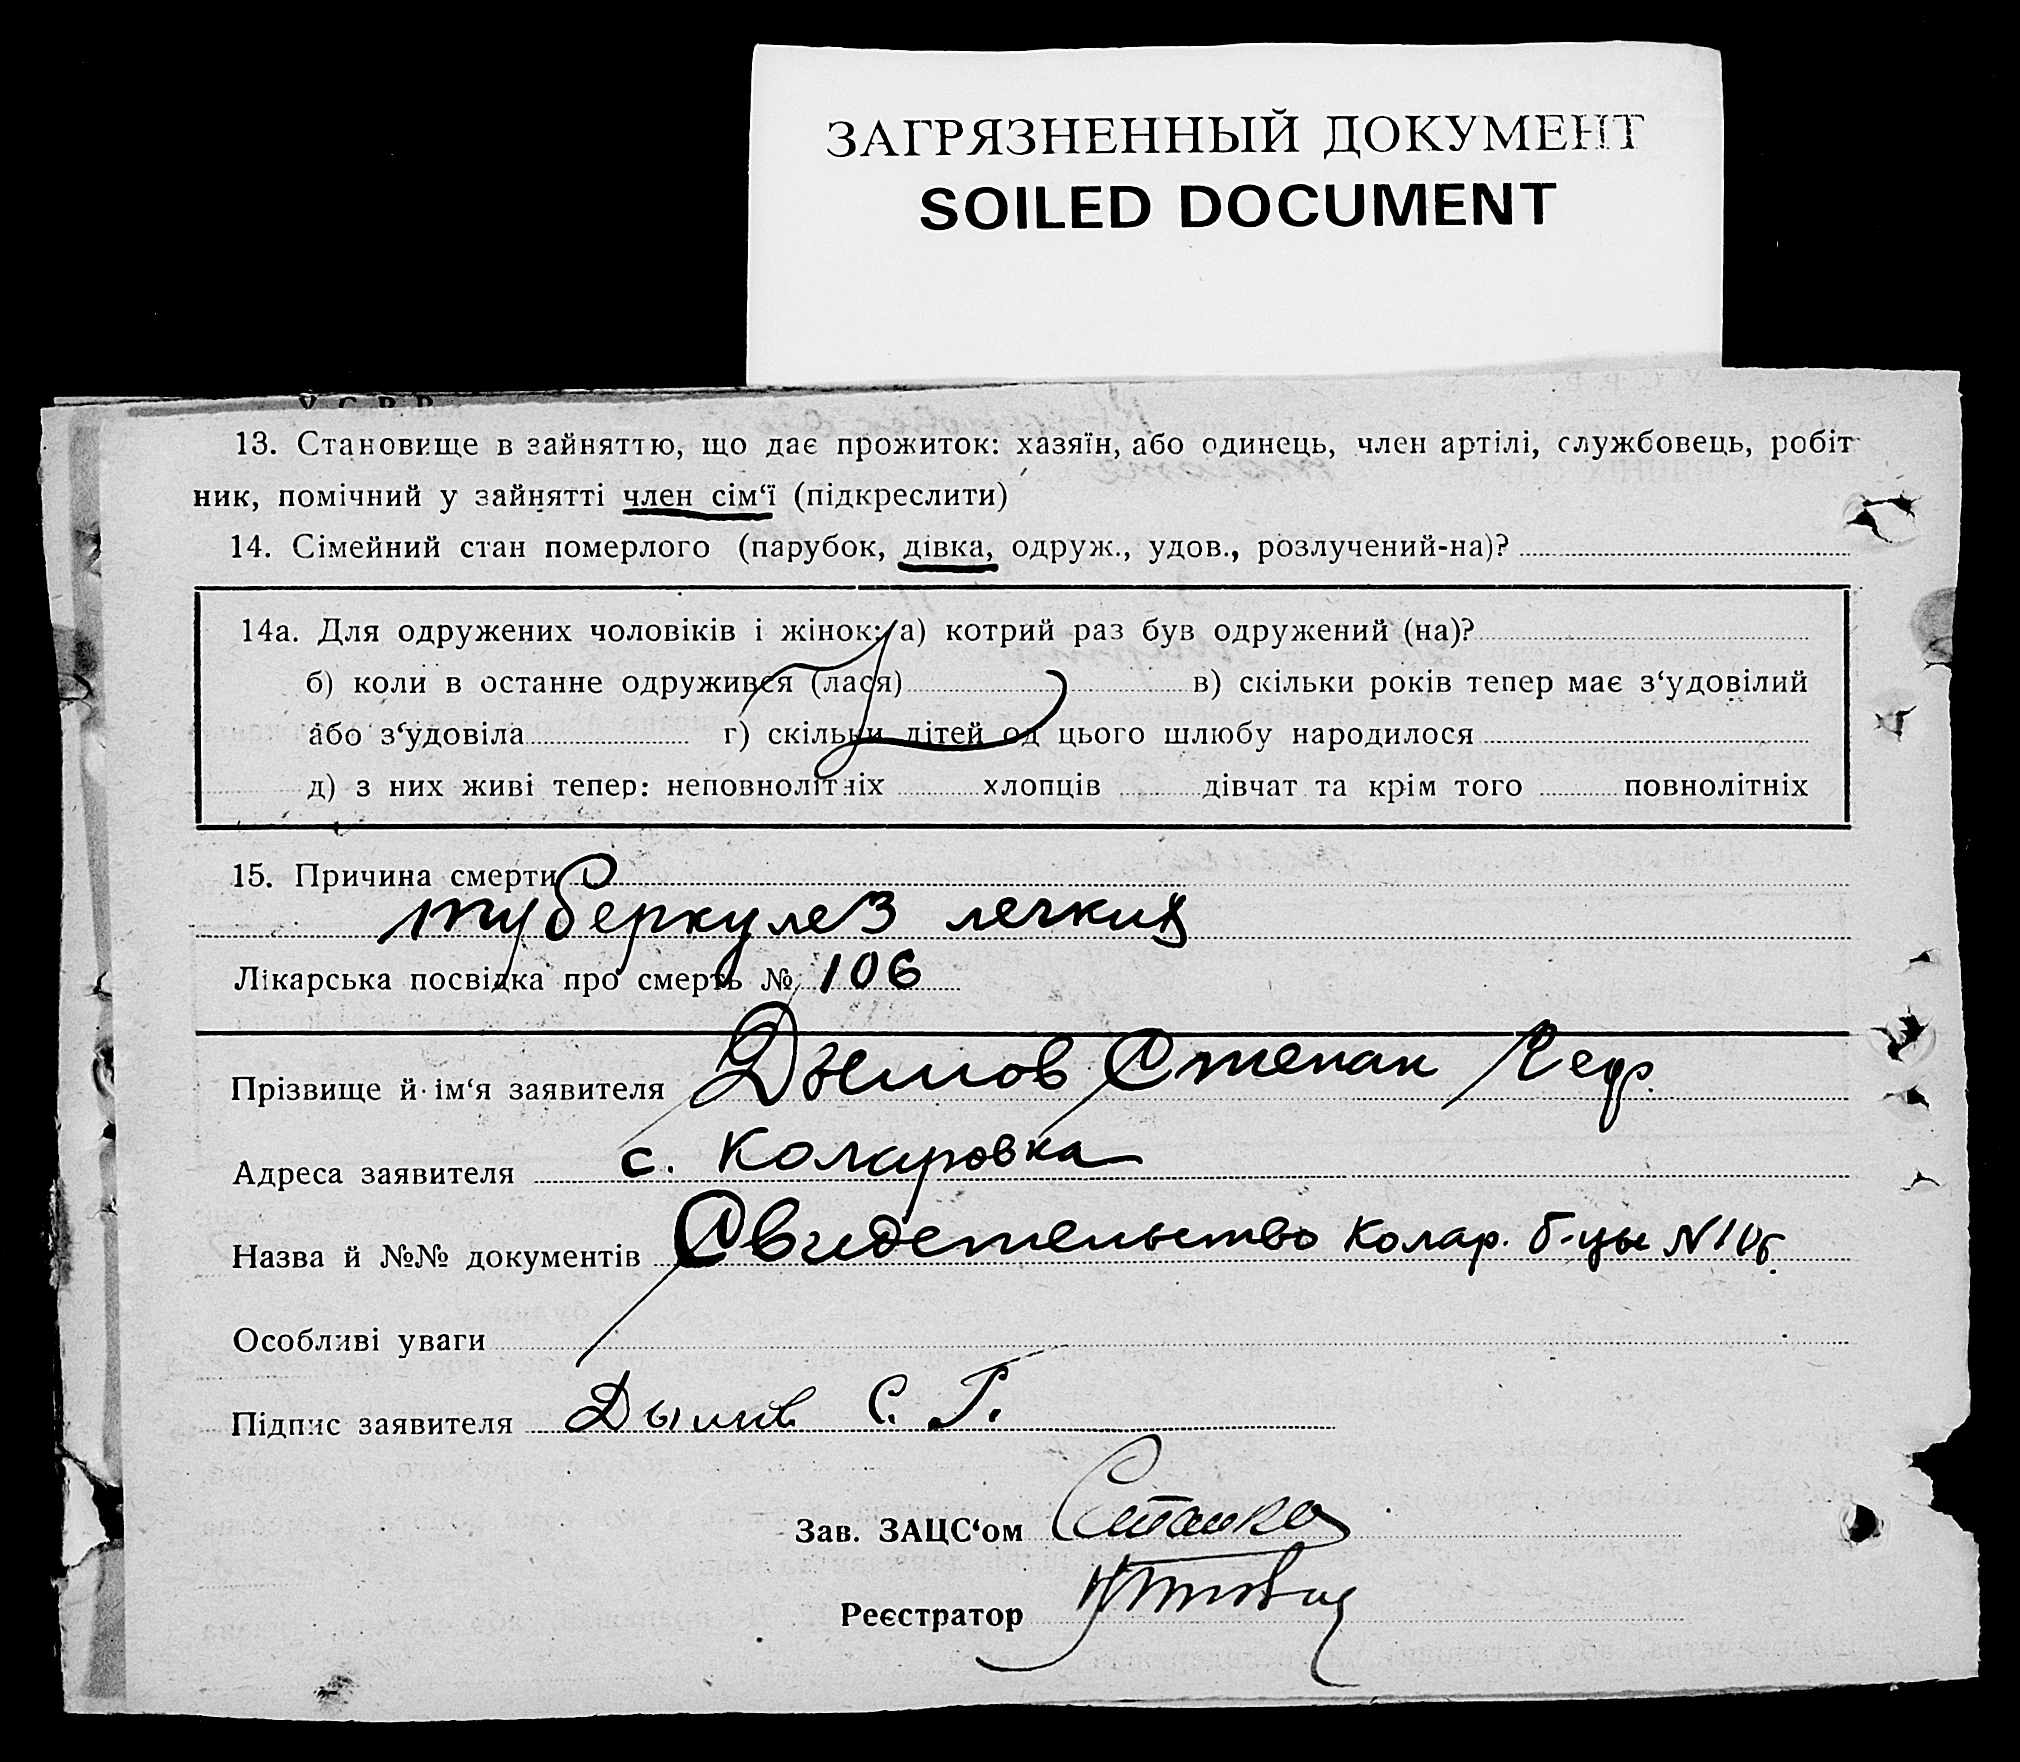 ЗАГРЯЗНЕННЫЙ ДОКУМЕНТ
SOILED DOCUMENT
У. С. Р. Р.
13. Становище в зайняттю, що дає прожиток: хазяїн, або одинець, член артілі, службовець, робіт
ник, помічний у зайнятті член сім‘ї (підкреслити)
14. Сімейний стан померлого (парубок, дівка, одруж., удов., розлучений-на)?
14а. Для одружених чоловіків і жінок: а) котрий раз був одружений (на)?
б) коли в останне одружився (лася) в) скільки років тепер має з‘удовілий
або з‘удовіла г) скільки дітей од цього шлюбу народилося
д) з них живі тепер: неповнолітніх хлопців дівчат та крім того повнолітніх
15. Причина смерти
туберкулез легких
Лікарська посвідка про смерть № 106
Прізвище й ім‘я заявителя Дымов Степан
Адреса заявителя с. Коларовка
Назва й №№ документів Свидетельство Колар. б-цы N 106.
Особливі уваги
Підпис заявителя Дымов С. Г.
Зав. ЗАЦС‘ом
Реєстратор